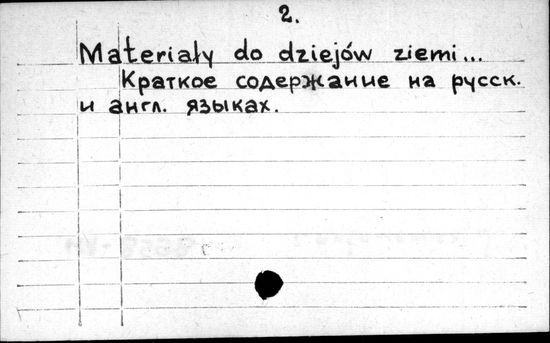 2.
Materiały do dziejów ziemi...
Краткое содержание на русск.
и англ. языках.